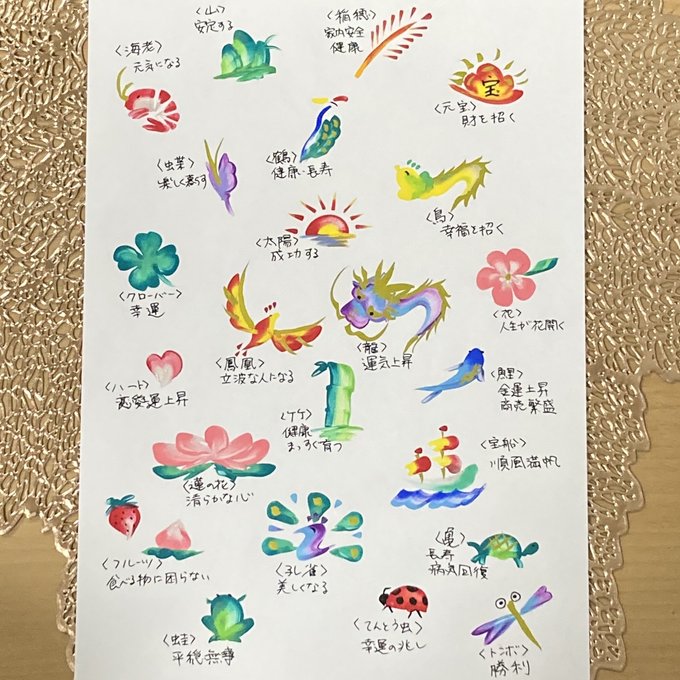 〈山〉
安定する
〈稲穂〉
家内安全
健康
〈海老〉
元気になる
宝
〈元宝〉
財を招く
〈鶴〉
健康・長寿
〈蝶〉
楽しく暮らす
〈鳥〉
幸福を招く
〈太陽〉
成功する
〈クローバー〉
幸運
〈花〉
人生が花開く
〈鳳凰〉
立波な人になる
〈龍〉
運気上昇
〈ハート〉
恋愛運上昇
〈鯉〉
金運上昇
商売繁盛
〈竹〉
健康
まっすぐ育つ
〈宝船〉
順風満帆
〈蓮の花〉
清らかな心
〈フルーツ〉
食べる物に困らない
〈孔雀〉
美しくなる
〈亀〉
長寿
病気回復
〈蛙〉
平穏無事
〈てんとう虫〉
幸運の兆し
〈トンボ〉
勝利